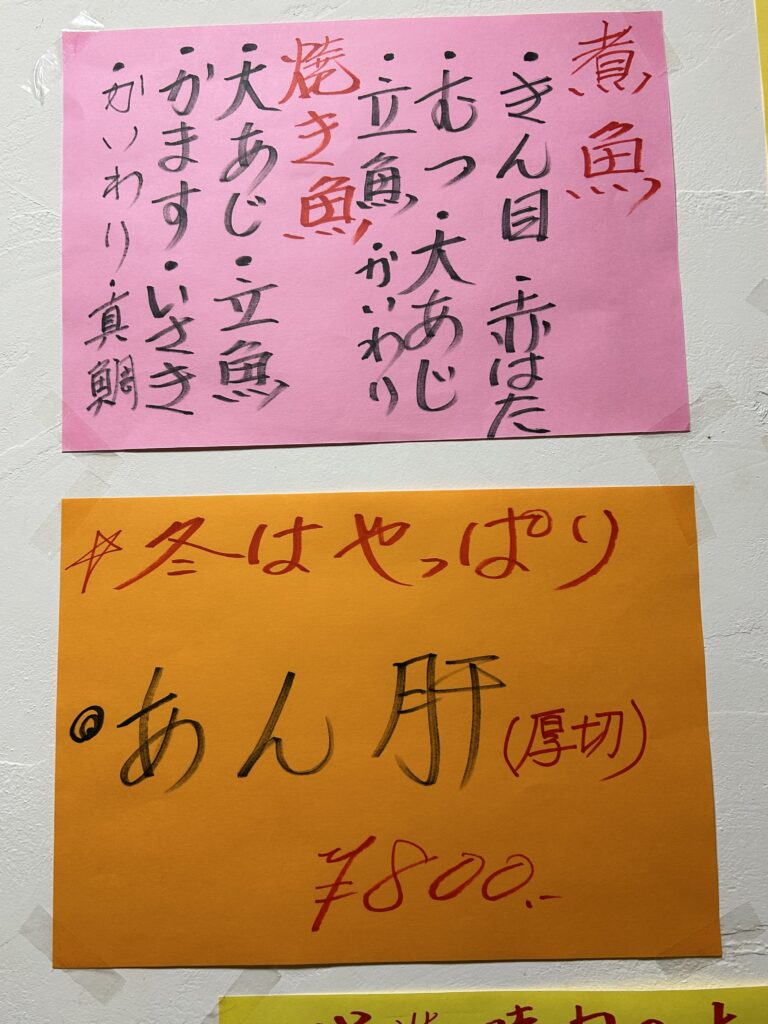 煮魚
・きん目・赤はた
・むつ・大あじ
・立魚・かいわり
焼き魚
・大あじ・立魚
・かます・いさき
・かいわり・真鯛
☆冬はやっぱり
◎あん肝(厚切)
¥800.-